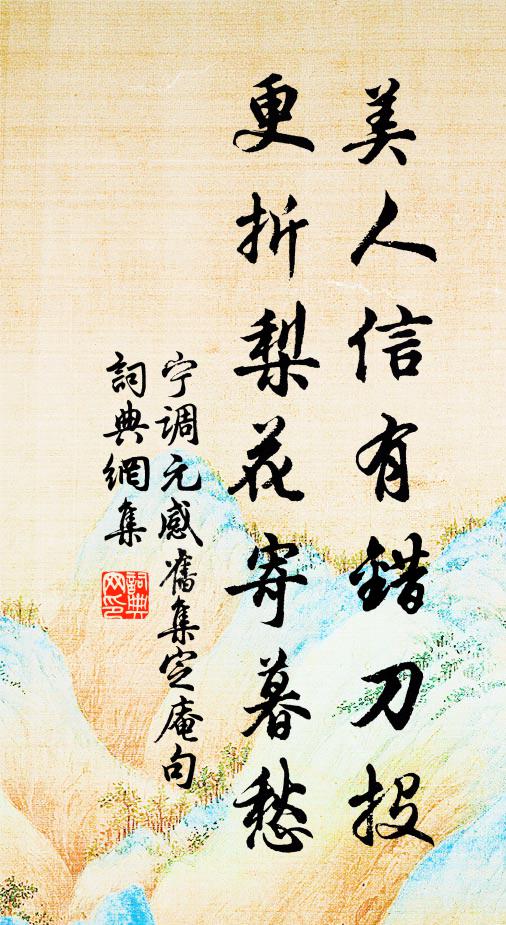 美人信有錯刀投
更折梨花寄暮愁
宁调元感舊集定庵句
詞典網集
詞典網印